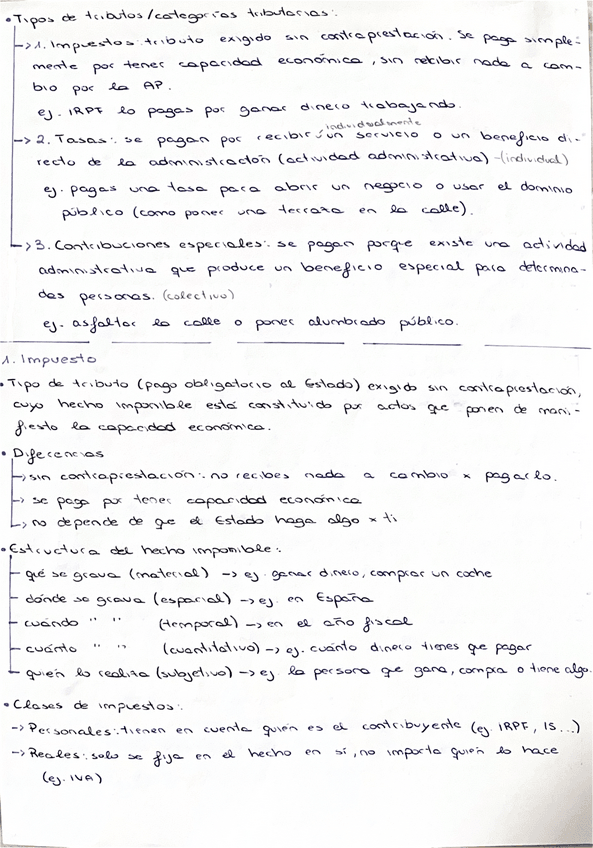 • Tipos de tributos/categorías tributarias:
-> 1. Impuestos: tributo exigido sin contraprestación. Se paga simple-
mente por tener capacidad económica, sin recibir nada a cam-
bio por la AP.
ej. IRPF lo pagas por ganar dinero trabajando.
individualmente
-> 2. Tasas: se pagan por recibir un servicio o un beneficio di-
recto de la administración (actividad administrativa) - (individual)
ej. pagas una tasa para abrir un negocio o usar el dominio
público (como poner una terraza en la calle).
-> 3. Contribuciones especiales: se pagan porque existe una actividad
administrativa que produce un beneficio especial para determina-
das personas. (colectivo)
ej. asfaltar la calle o poner alumbrado público.
1. Impuesto
• Tipo de tributo (pago obligatorio al Estado) exigido sin contraprestación,
cuyo hecho imponible está constituido por actos que ponen de mani-
fiesto la capacidad económica.
• Diferencias
-> sin contraprestación: no recibes nada a cambio x pagarlo.
-> se paga por tener capacidad económica
-> no depende de que el Estado haga algo x ti
• Estructura del hecho imponible:
- qué se grava (material) -> ej. ganar dinero, comprar un coche
- dónde se grava (espacial) -> ej. en España
- cuándo " " (temporal) -> en el año fiscal
- cuánto " " (cuantitativo) -> ej. cuánto dinero tienes que pagar
- quién lo realiza (subjetivo) -> ej la persona que gana, compra o tiene algo.
• Clases de impuestos:
-> Personales: tienen en cuenta quién es el contribuyente (ej. IRPF, IS...)
-> Reales: solo se fija en el hecho en sí, no importa quién lo hace
(ej. IVA)